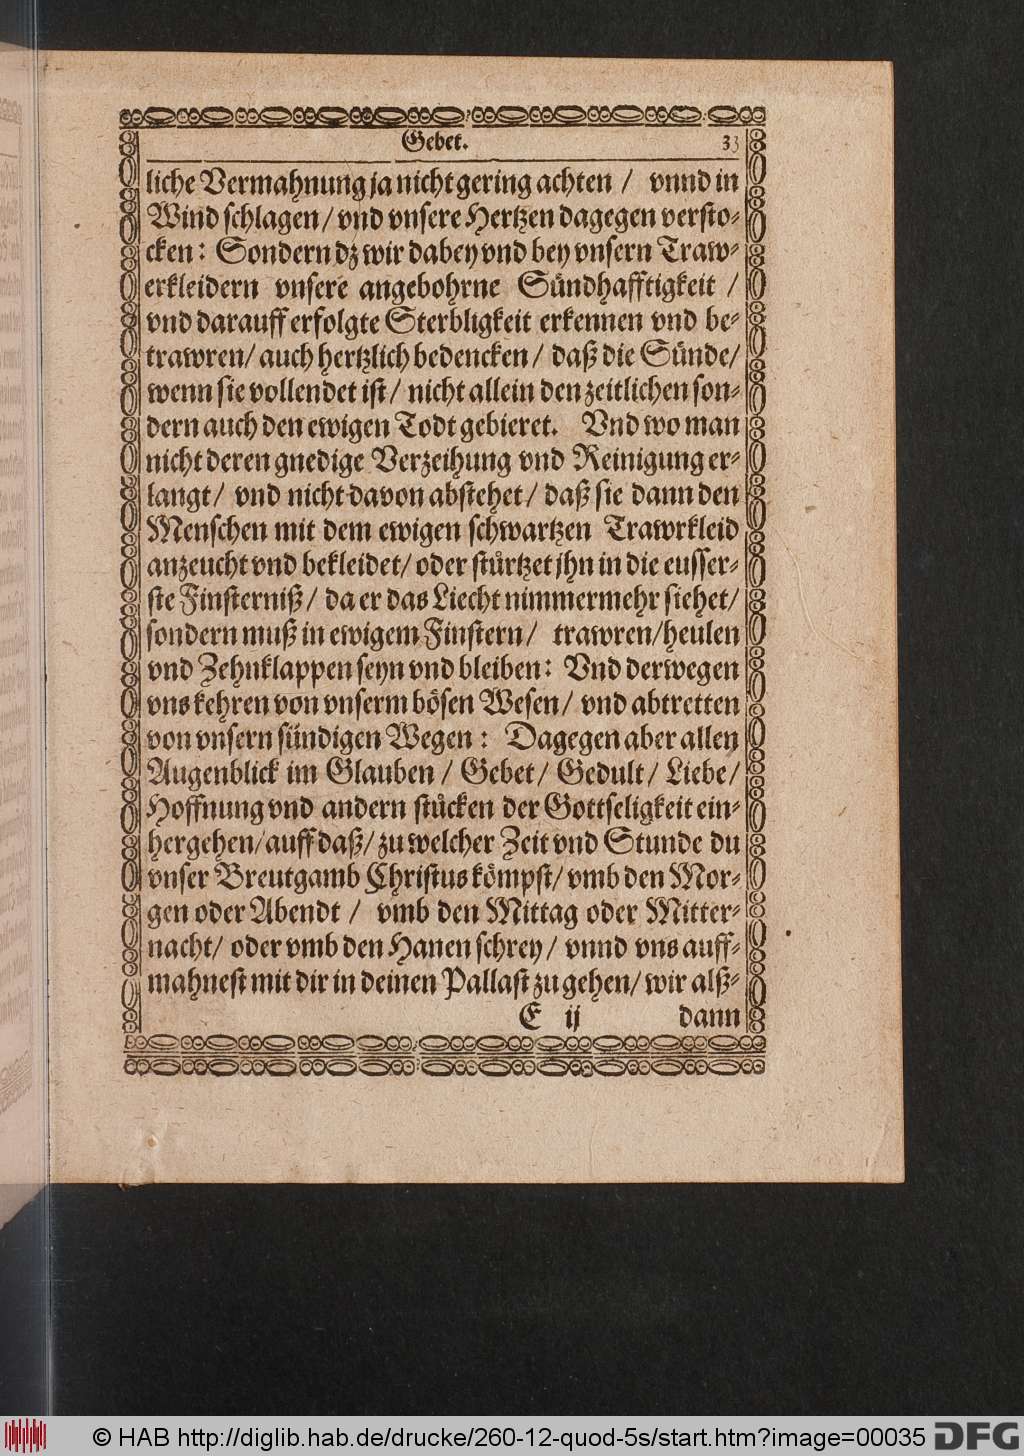 Gebet. 33
liche Vermahnung ja nicht gering achten / vnnd in
Wind schlagen / vnd vnsere Hertzen dagegen versto-
cken: Sondern dz wir dabey vnd bey vnsern Traw-
erkleidern vnsere angebohrne Sündhafftigkeit /
vnd darauff erfolgte Sterbligkeit erkennen vnd be-
trawren / auch hertzlich bedencken / daß die Sünde /
wenn sie vollendet ist / nicht allein den zeitlichen son-
dern auch den ewigen Todt gebieret. Vnd wo man
nicht deren gnedige Verzeihung vnd Reinigung er-
langt / vnd nicht davon abstehet / daß sie dann den
Menschen mit dem ewigen schwartzen Trawrkleid
anzeucht vnd bekleidet / oder stürtzet jhn in die eusser-
ste Finsterniß / da er das Liecht nimmermehr siehet /
sondern muß in ewigem Finstern / trawren / heulen
vnd Zehnklappen seyn vnd bleiben: Vnd derwegen
vns kehren von vnserm bösen Wesen / vnd abtretten
von vnsern sündigen Wegen: Dagegen aber allen
Augenblick im Glauben / Gebet / Gedult / Liebe /
Hoffnung vnd andern stücken der Gottseligkeit ein-
hergehen / auff daß / zu welcher Zeit vnd Stunde du
vnser Breutgamb Christus kömpst / vmb den Mor-
gen oder Abendt / vmb den Mittag oder Mitter-
nacht / oder vmb den Hanen schrey / vnnd vns auff-
mahnest mit dir in deinen Pallast zu gehen / wir alß-
E ij dann
© HAB http://diglib.hab.de/drucke/260-12-quod-5s/start.htm?image=00035 DFG